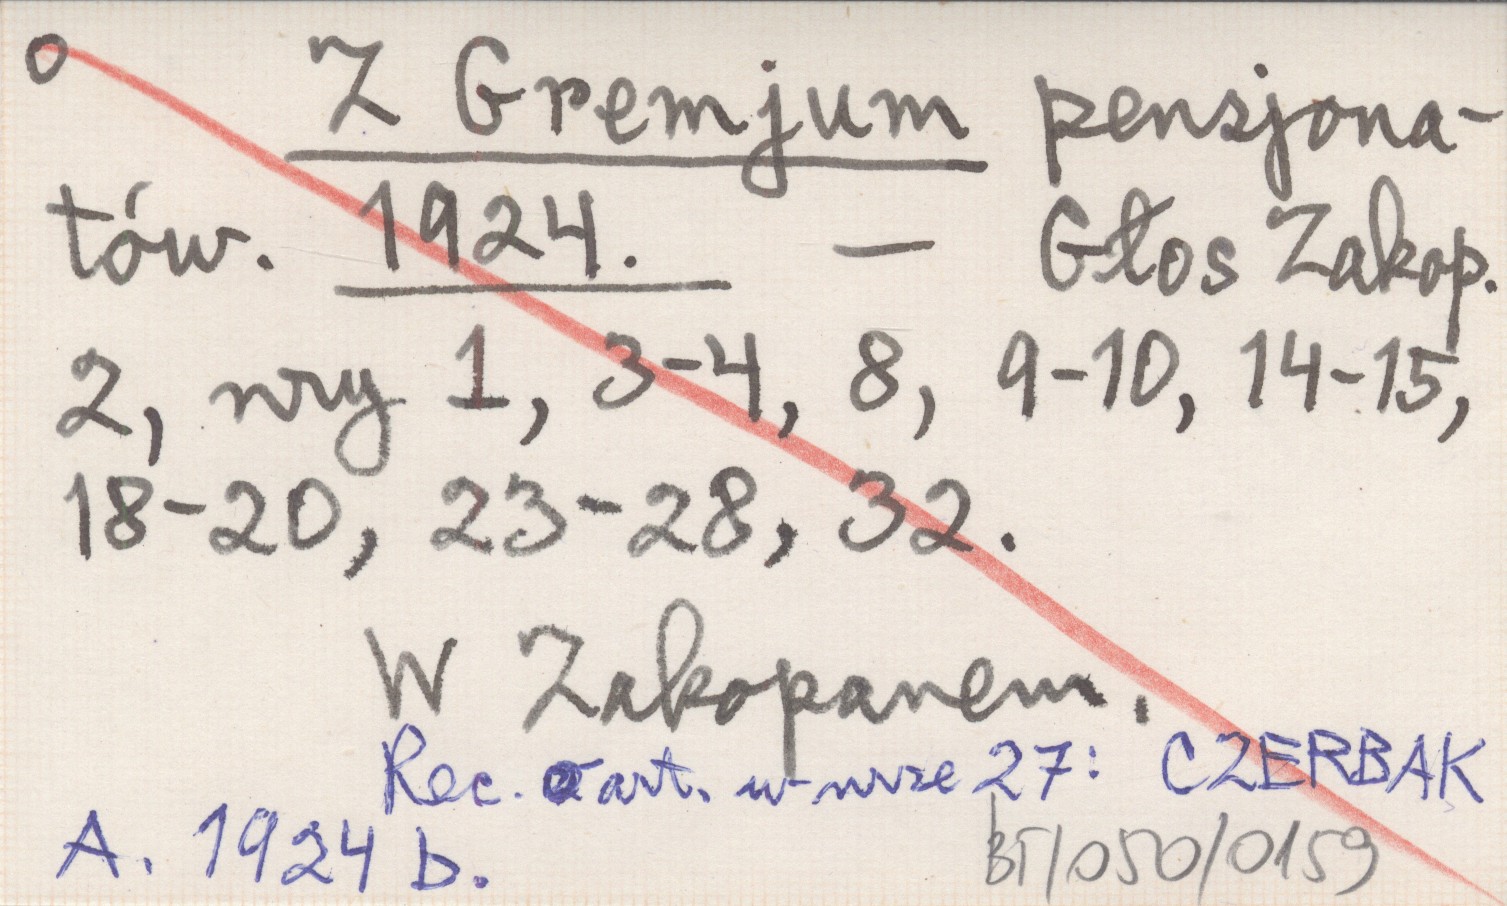 o Z Gremjum pensjona-
tów. 1924. — Głos Zakop.
2, nry 1, 3-4, 8, 9-10, 14-15,
18-20, 23-28, 32.
W Zakopanem.
Rec. art. w nrze 27: CZERBAK
A. 1924 b.
BT/050/0159